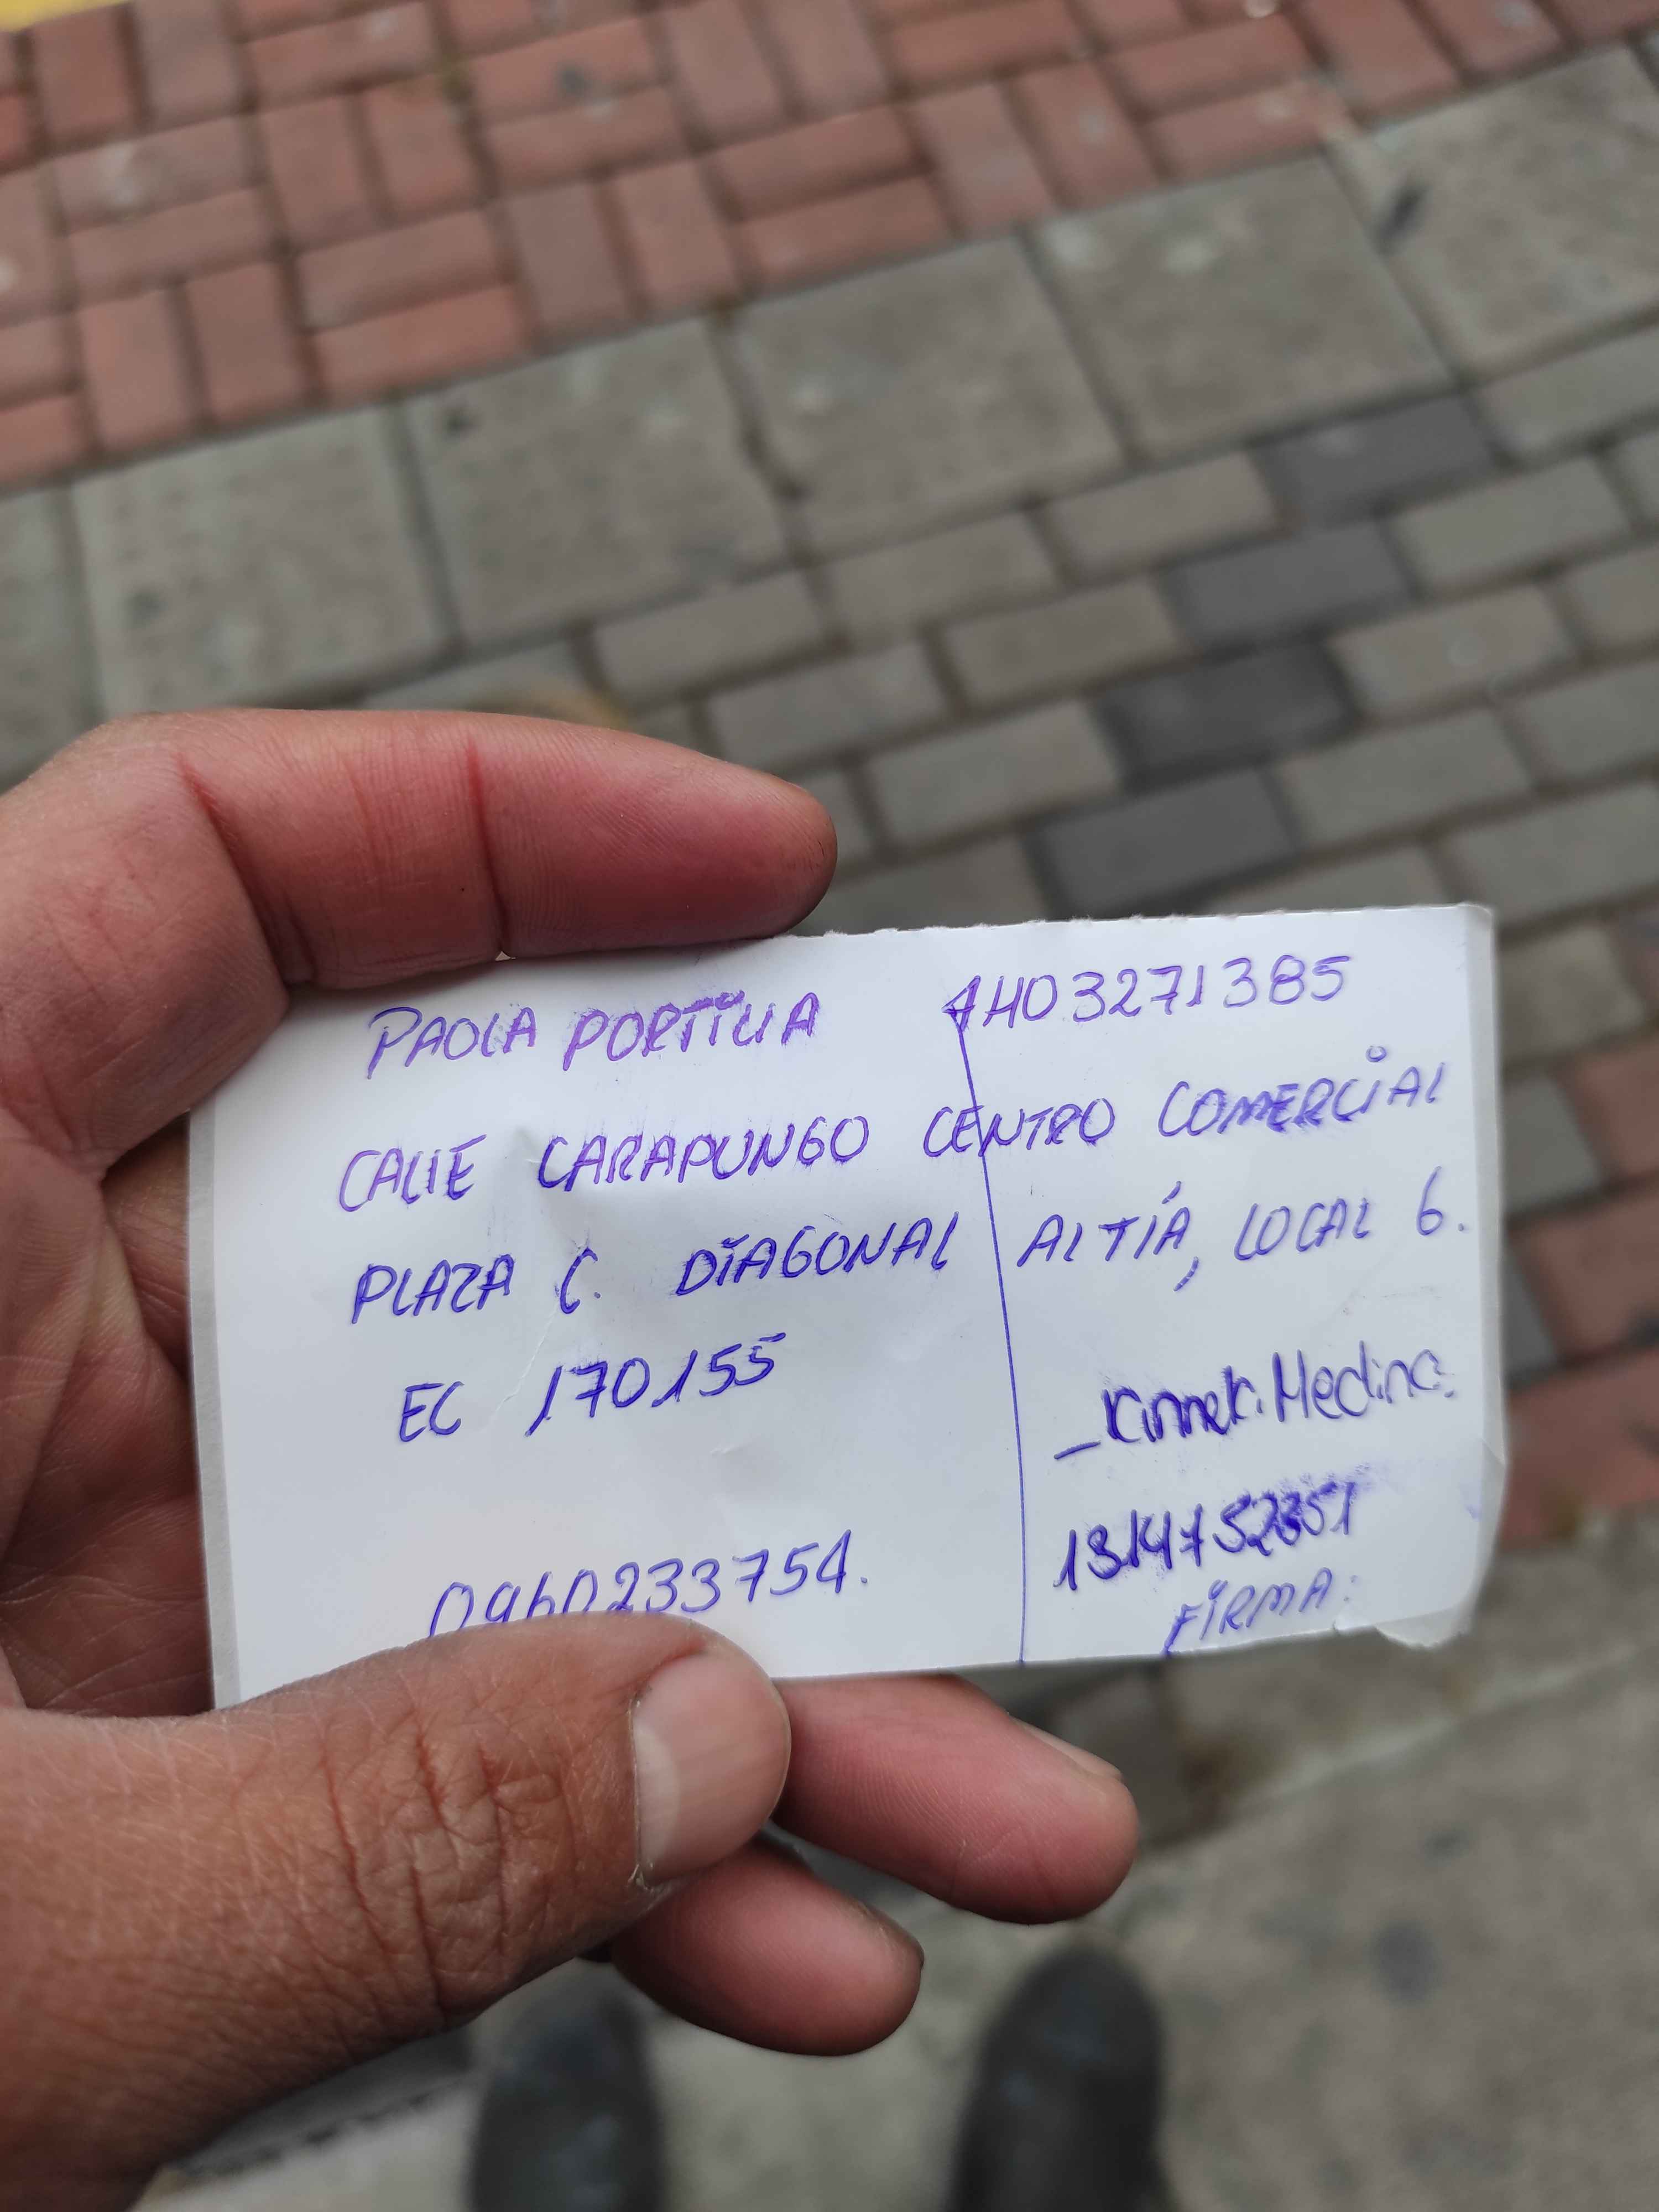 PAOLA PORTILLA 4403271385
CALLE CARAPUNGO CENTRO COMERCIAL
PLAZA C. DIAGONAL ALTÍA, LOCAL 6.
EC 170155
Medina.
0960233754.
FIRMA: